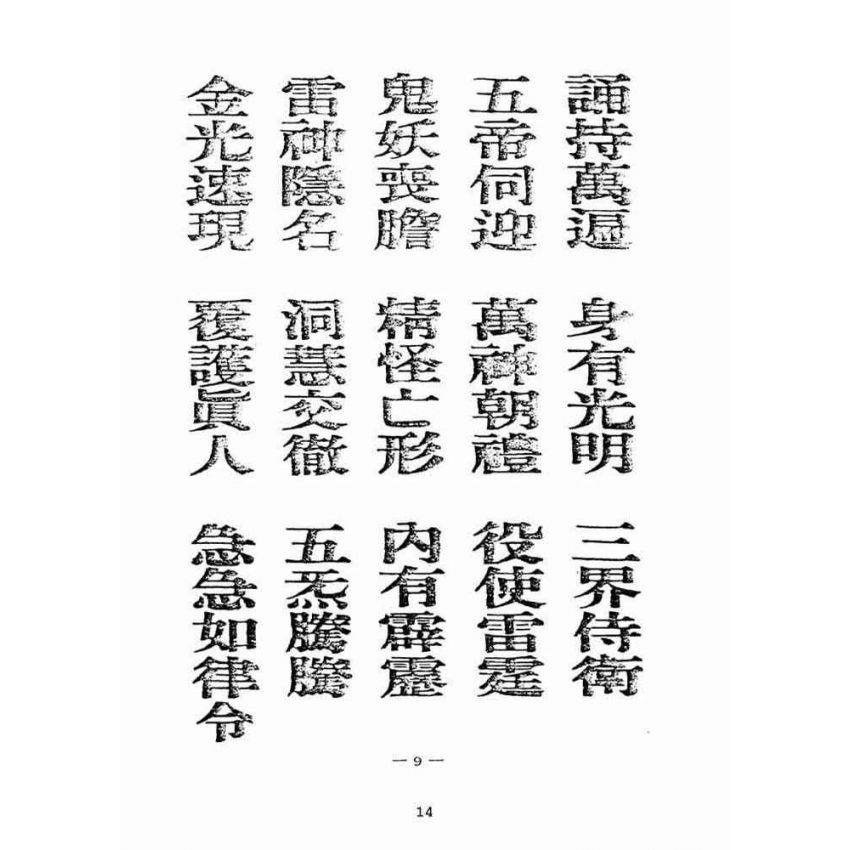 誦持萬遍 身有光明 三界侍衛
五帝伺迎 萬神朝禮 役使雷霆
鬼妖喪膽 精怪亡形 內有霹靂
雷神隱名 洞慧交徹 五炁騰騰
金光速現 覆護眞人 急急如律令
— 9 —
14